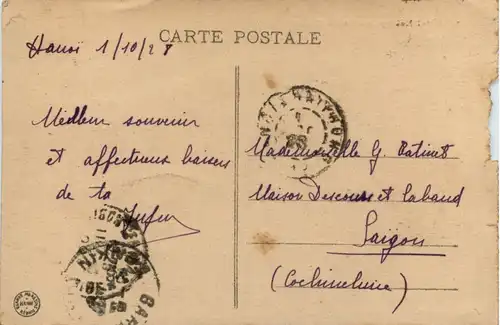 CARTE POSTALE
Hanoi 1/10/28
Meilleur souvenir
et affectueux baisers
de ta
Mademoiselle G. Ratinet
Maison Descours et Cabaud
Saïgon
(Cochinchine)